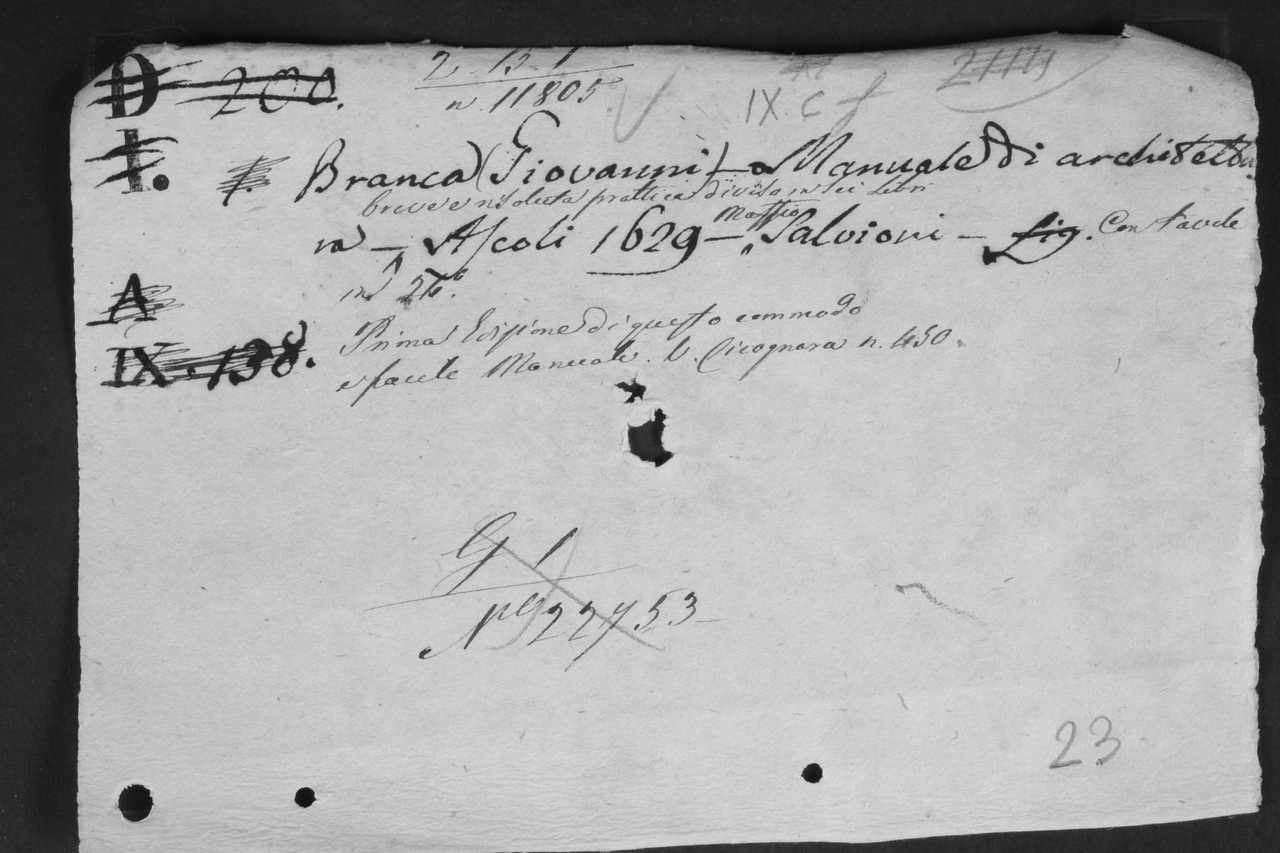 D 200.
2 . 15 . 1
n. 11805
IX. C f
1.
f. Branca (Giovanni) - Manuale di architettu
breve e risoluta prattica diviso in sei Libri
ra - Ascoli 1629 - Maffio Salvioni - fig. Con tavole
in 24.°
A
IX. 138.
Prima Edizione di questo commodo
e facile Manuale. V. Cicognara n. 450.
G 1
N.° 22753
23